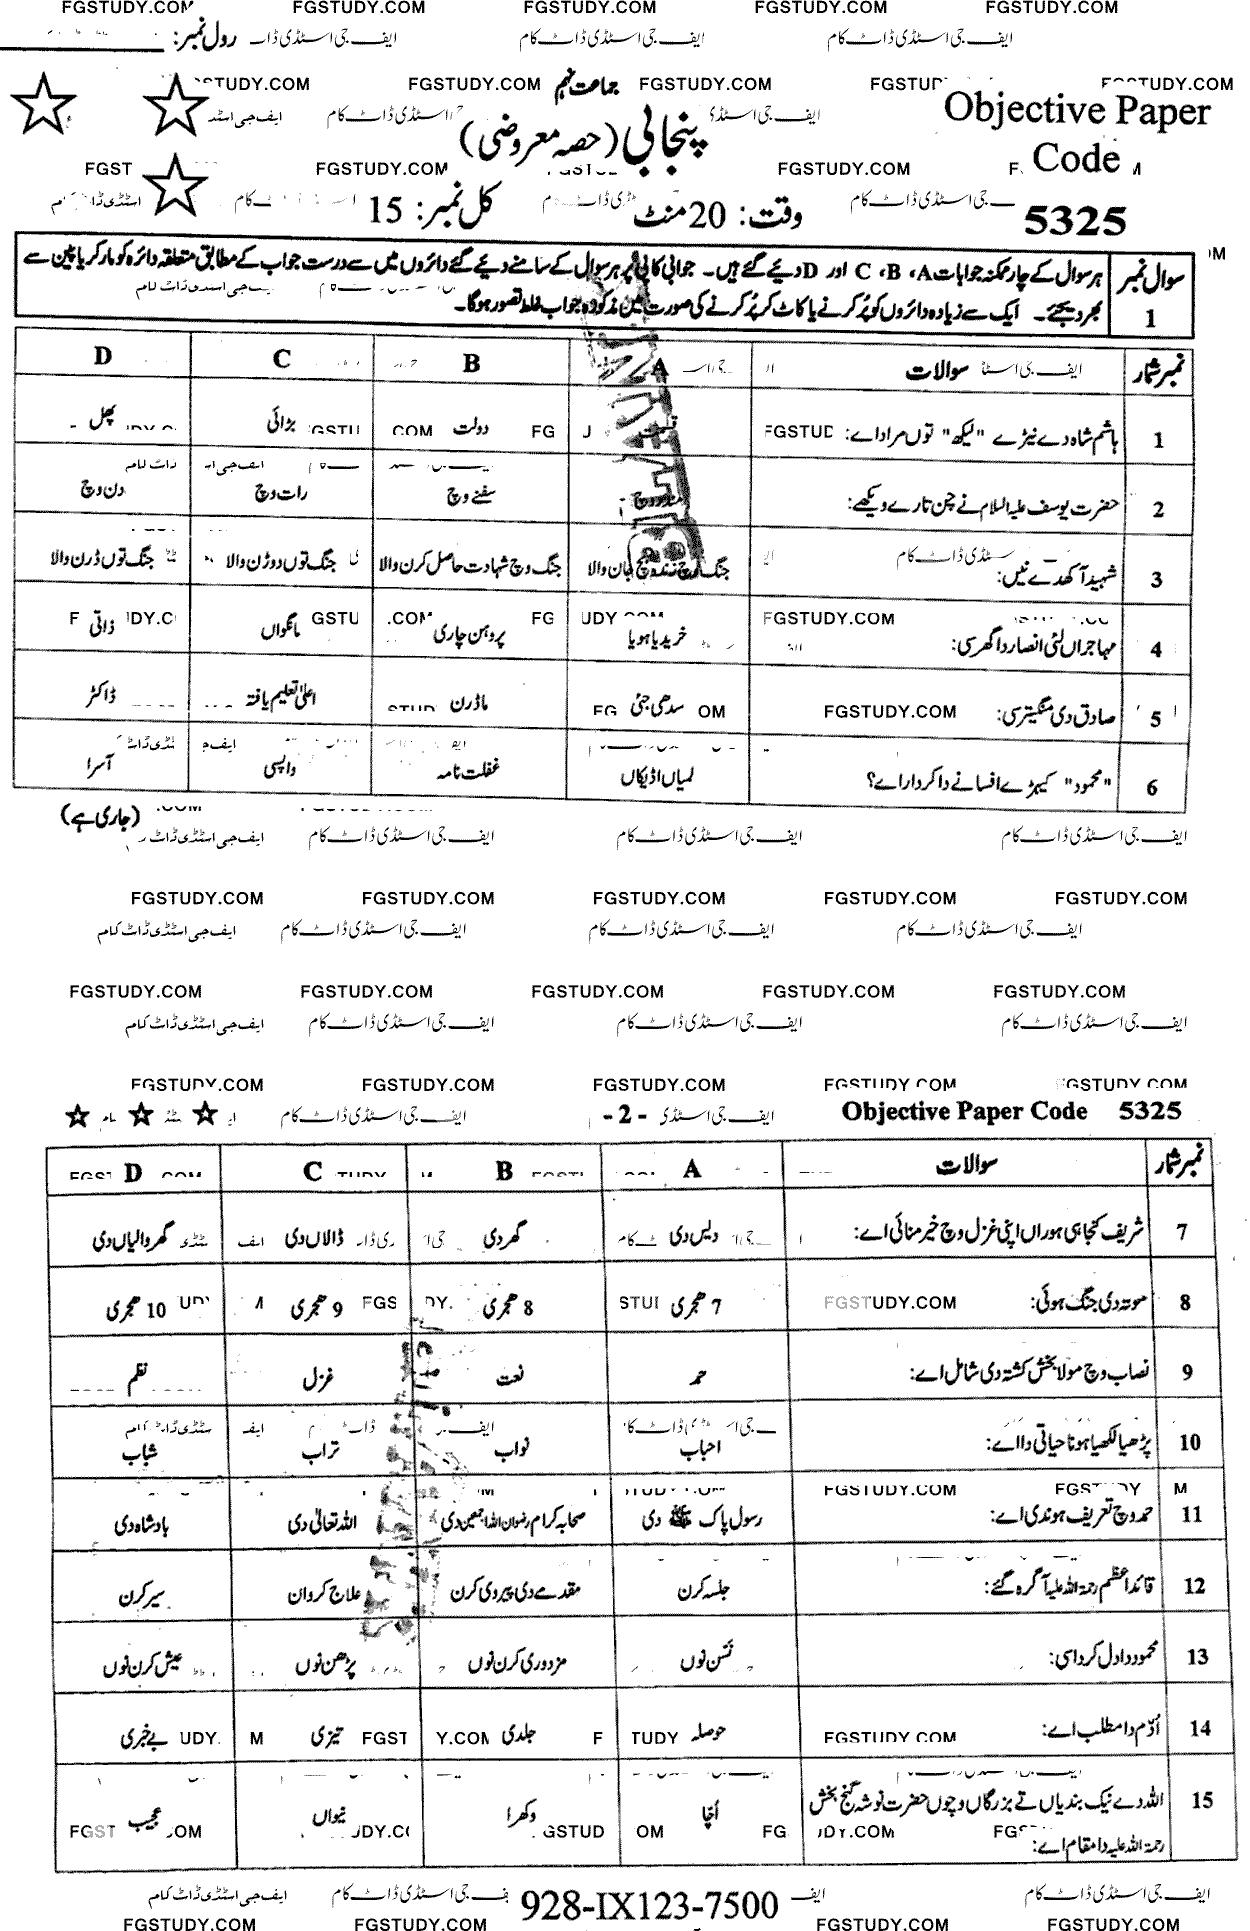 رول نمبر:
جماعت نہم
پنجابی (حصہ معروضی)
Objective Paper
Code
5325
وقت: 20 منٹ
کل نمبر: 15
سوال نمبر 1
ہر سوال کے چار ممکنہ جوابات A، B، C اور D دیئے گئے ہیں۔ جوابی کاپی پر ہر سوال کے سامنے دیئے گئے دائروں میں سے درست جواب کے مطابق متعلقہ دائرہ کو مارکر یا پین سے
بھر دیجئے۔ ایک سے زیادہ دائروں کو پُر کرنے یا کاٹ کر پُر کرنے کی صورت میں مذکورہ جواب غلط تصور ہوگا۔
نمبر شمار سوالات A B C D
1 ہاشم شاہ دے نیڑے "لیکھ" توں مراد اے: دولت بڑائی پھل
2 حضرت یوسف علیہ السلام نے چن تارے ویکھے: سفنے وچ رات وچ دن وچ
3 شہید آکھدے نیں: جنگ وچ شہادت حاصل کرن والا جنگ توں دوڑن والا جنگ توں ڈرن والا
4 مہاجراں لئی انصار دا گھر سی: خریدیا ہویا پروہن چاری مانگواں ذاتی
5 صادق دی منگیتر سی: سدھی جئی ماڈرن اعلیٰ تعلیم یافتہ ڈاکٹر
6 "محمود" کیہڑے افسانے دا کردار اے؟ لمیاں اڈیکاں غفلت نامہ واپسی آسرا
(جاری ہے)
-2-
Objective Paper Code 5325
نمبر شمار سوالات A B C D
7 شریف کنجاہی ہوراں اپنی غزل وچ خیر منائی اے: دیس دی گھر دی ڈالاں دی گھر والیاں دی
8 موتہ دی جنگ ہوئی: 7 ھجری 8 ھجری 9 ھجری 10 ھجری
9 نصاب وچ مولا بخش کشتہ دی شامل اے: حمد نعت غزل نظم
10 پڑھیا لکھیا ہونا حیاتی دا اے: احباب نواب تراب شباب
11 حمد وچ تعریف ہوندی اے: رسول پاک ﷺ دی صحابہ کرام رضوان اللہ اجمعین دی اللہ تعالیٰ دی بادشاہ دی
12 قائد اعظم رحمۃ اللہ علیہ آگرہ گئے: جلسہ کرن مقدمے دی پیروی کرن علاج کروان سیر کرن
13 محمود دا دل کردا سی: نسن نوں مزدوری کرن نوں پڑھن نوں عیش کرن نوں
14 اُدّم دا مطلب اے: حوصلہ جلدی تیزی بے خبری
15 اللہ دے نیک بندیاں تے بزرگاں وچوں حضرت نوشہ گنج بخش
رحمۃ اللہ علیہ دا مقام اے: اُچا وکھرا نیواں عجیب
928-IX123-7500
FGSTUDY.COM
ایف جی اسٹڈی ڈاٹ کام